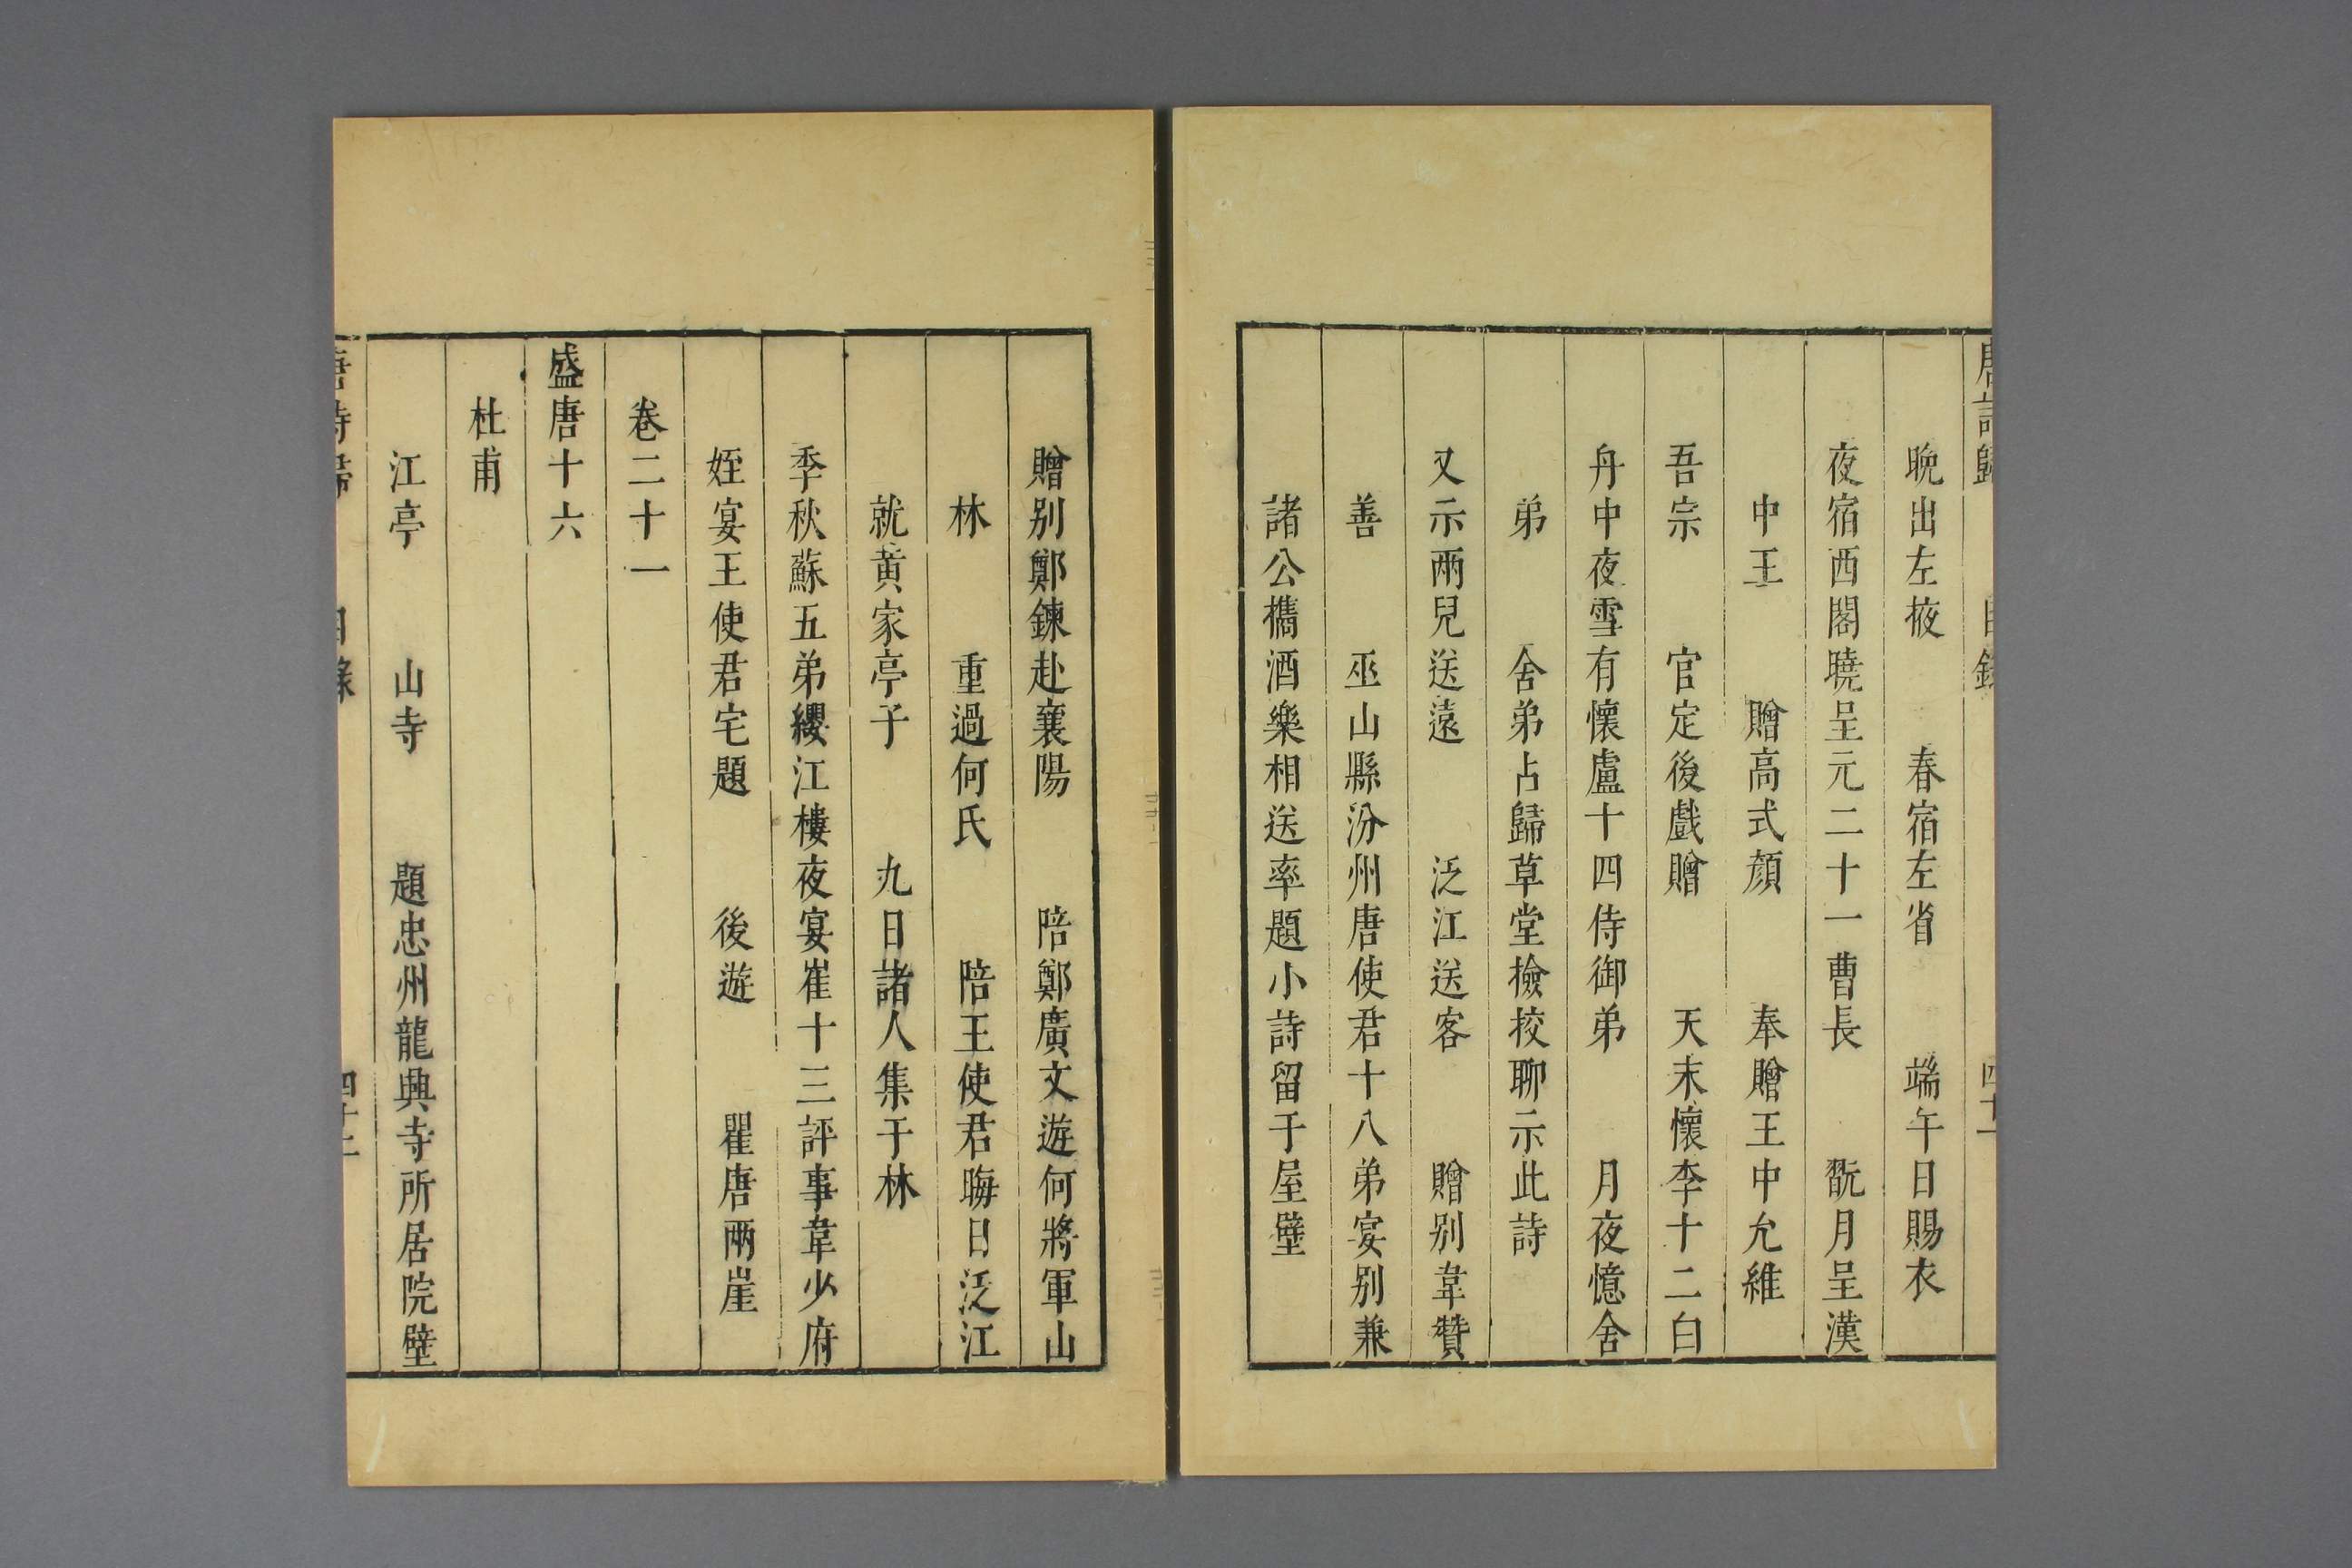 唐詩歸 目錄 四十一
晚出左掖 春宿左省 端午日賜衣
夜宿西閣曉呈元二十一曹長 翫月呈漢
中王 贈高式顏 奉贈王中允維
吾宗 官定後戲贈 天末懷李十二白
舟中夜雪有懷盧十四侍御弟 月夜憶舍
弟 舍弟占歸草堂檢挍聊示此詩
又示兩兒送遠 泛江送客 贈別韋贊
善 巫山縣汾州唐使君十八弟宴別兼
諸公攜酒樂相送率題小詩留于屋壁
贈別鄭鍊赴襄陽 陪鄭廣文遊何將軍山
林 重過何氏 陪王使君晦日泛江
就黃家亭子 九日諸人集于林
季秋蘇五弟纓江樓夜宴崔十三評事韋少府
姪宴王使君宅題 後遊 瞿唐兩崖
卷二十一
盛唐十六
杜甫
江亭 山寺 題忠州龍興寺所居院壁
唐詩歸 目錄